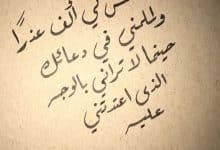 لي ألف عذرًا
ولملمني في دعائك
حينما لا تراني بالوجه
الذى اعتدتني
عليه